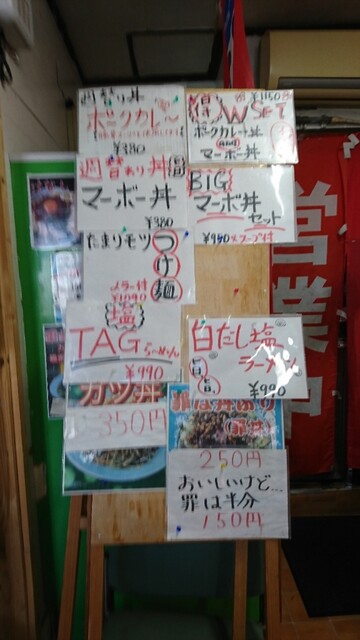 週替り丼
ポークカレー
¥380
W SET
¥1150
ポークカレー丼
and
マーボー丼
週替わり丼
マーボ丼
¥380
BIG
マーボ丼
セット
¥950 スープ付
たまりモツつけ麺
メラー付
¥1090
塩
TAGらーめん
¥990
白だし塩
ラーメン
¥990
カツ丼
350円
罪な丼あり
(罪丼)
250円
おいしいけど…
罪は半分
150円
営業中